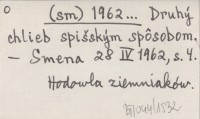 o (sm) 1962... Druhý
chlieb spišským spôsobom.
- Smena 28 IV 1962, s. 4.
Hodowla ziemniaków.